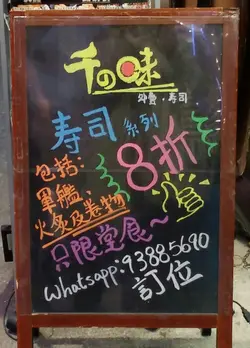 千の味
外賣·壽司
寿司系列
8折
包括:
軍艦,
火炙及卷物
只限堂食~
Whatsapp:93885690
訂位